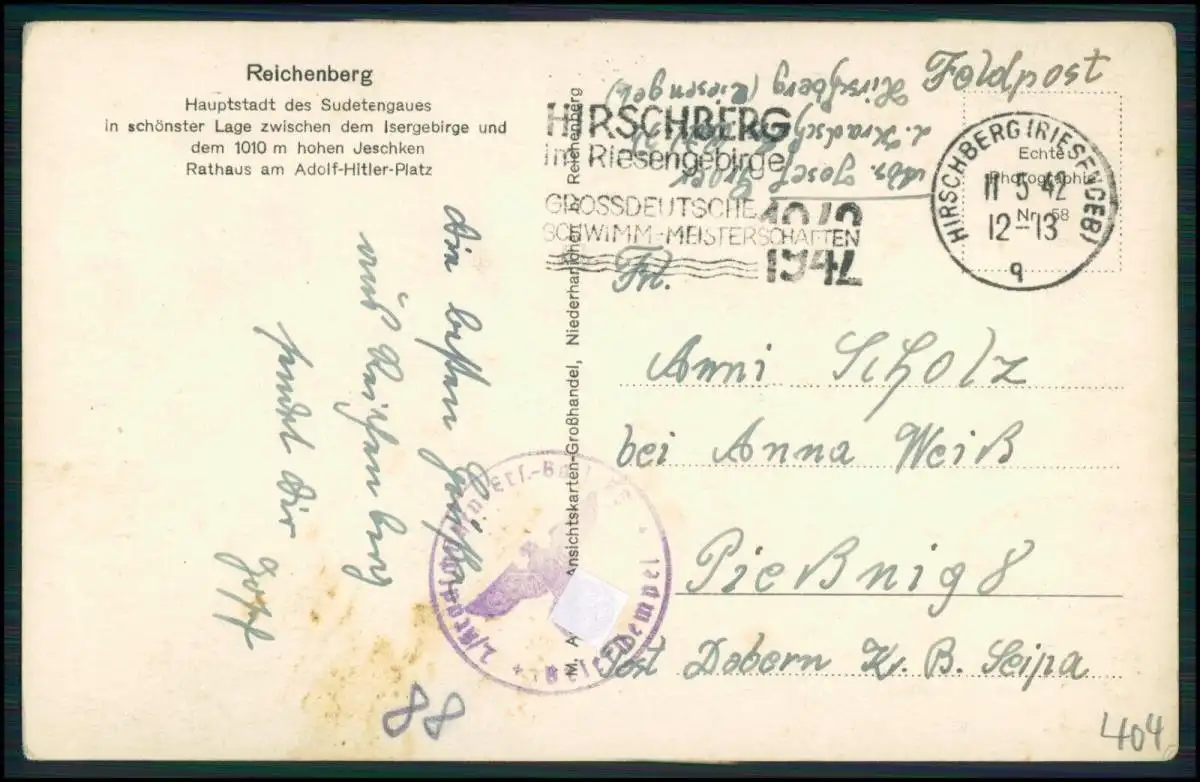 Reichenberg
Hauptstadt des Sudetengaues
in schönster Lage zwischen dem Isergebirge und
dem 1010 m hohen Jeschken
Rathaus am Adolf-Hitler-Platz
Die besten Grüße
aus Reichenberg
sendet Dir
88
M. A. Ansichtskarten-Großhandel, Niederhanichen b. Reichenberg
Feldpost
Abs. Josef
Hirschberg (Riesengeb)
HIRSCHBERG
im Riesengebirge
GROSSDEUTSCHE
SCHWIMM-MEISTERSCHAFTEN
1942
HIRSCHBERG (RIESENGEB)
11 5 42
12-13
q
Echte
Photographie
Nr. 58
Frl.
Anni Scholz
bei Anna Weiß
Pießnig 8
Post Dobern Kr. B. Leipa
404